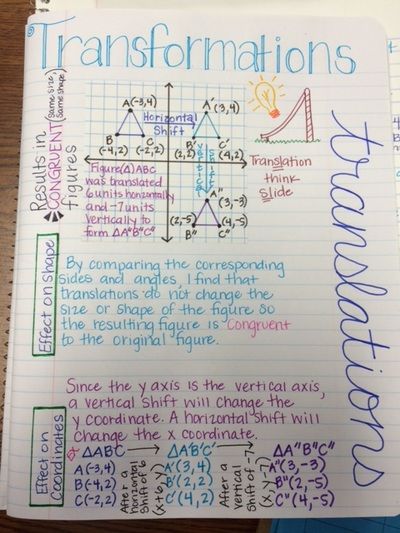 Transformations
translations
Results in
CONGRUENT (same size, same shape)
figures
A(-3,4)
B
(-4,2)
C
(-2,2)
Horizontal
Shift
A'(3,4)
B'
(2,2)
C'
(4,2)
Vertical
Shift
A"
(3,-3)
(2,-5)
B"
(4,-5)
C"
Figure(△)ABC
was translated
6 units horizontally
and -7 units
vertically to
form △A"B"C"
Translation
think
Slide
Effect on Shape
By comparing the corresponding
sides and angles, I find that
translations do not change the
size or shape of the figure so
the resulting figure is congruent
to the original figure.
Effect on
Coordinates
Since the y axis is the vertical axis,
a vertical shift will change the
y coordinate. A horizontal shift will
change the x coordinate.
△ABC
A(-3,4)
B(-4,2)
C(-2,2)
After a
horizontal
Shift of 6
(x+6, y)
△A'B'C'
A'(3,4)
B'(2,2)
C'(4,2)
After a
vertical
Shift of -7
(x, y-7)
△A"B"C"
A"(3,-3)
B"(2,-5)
C"(4,-5)